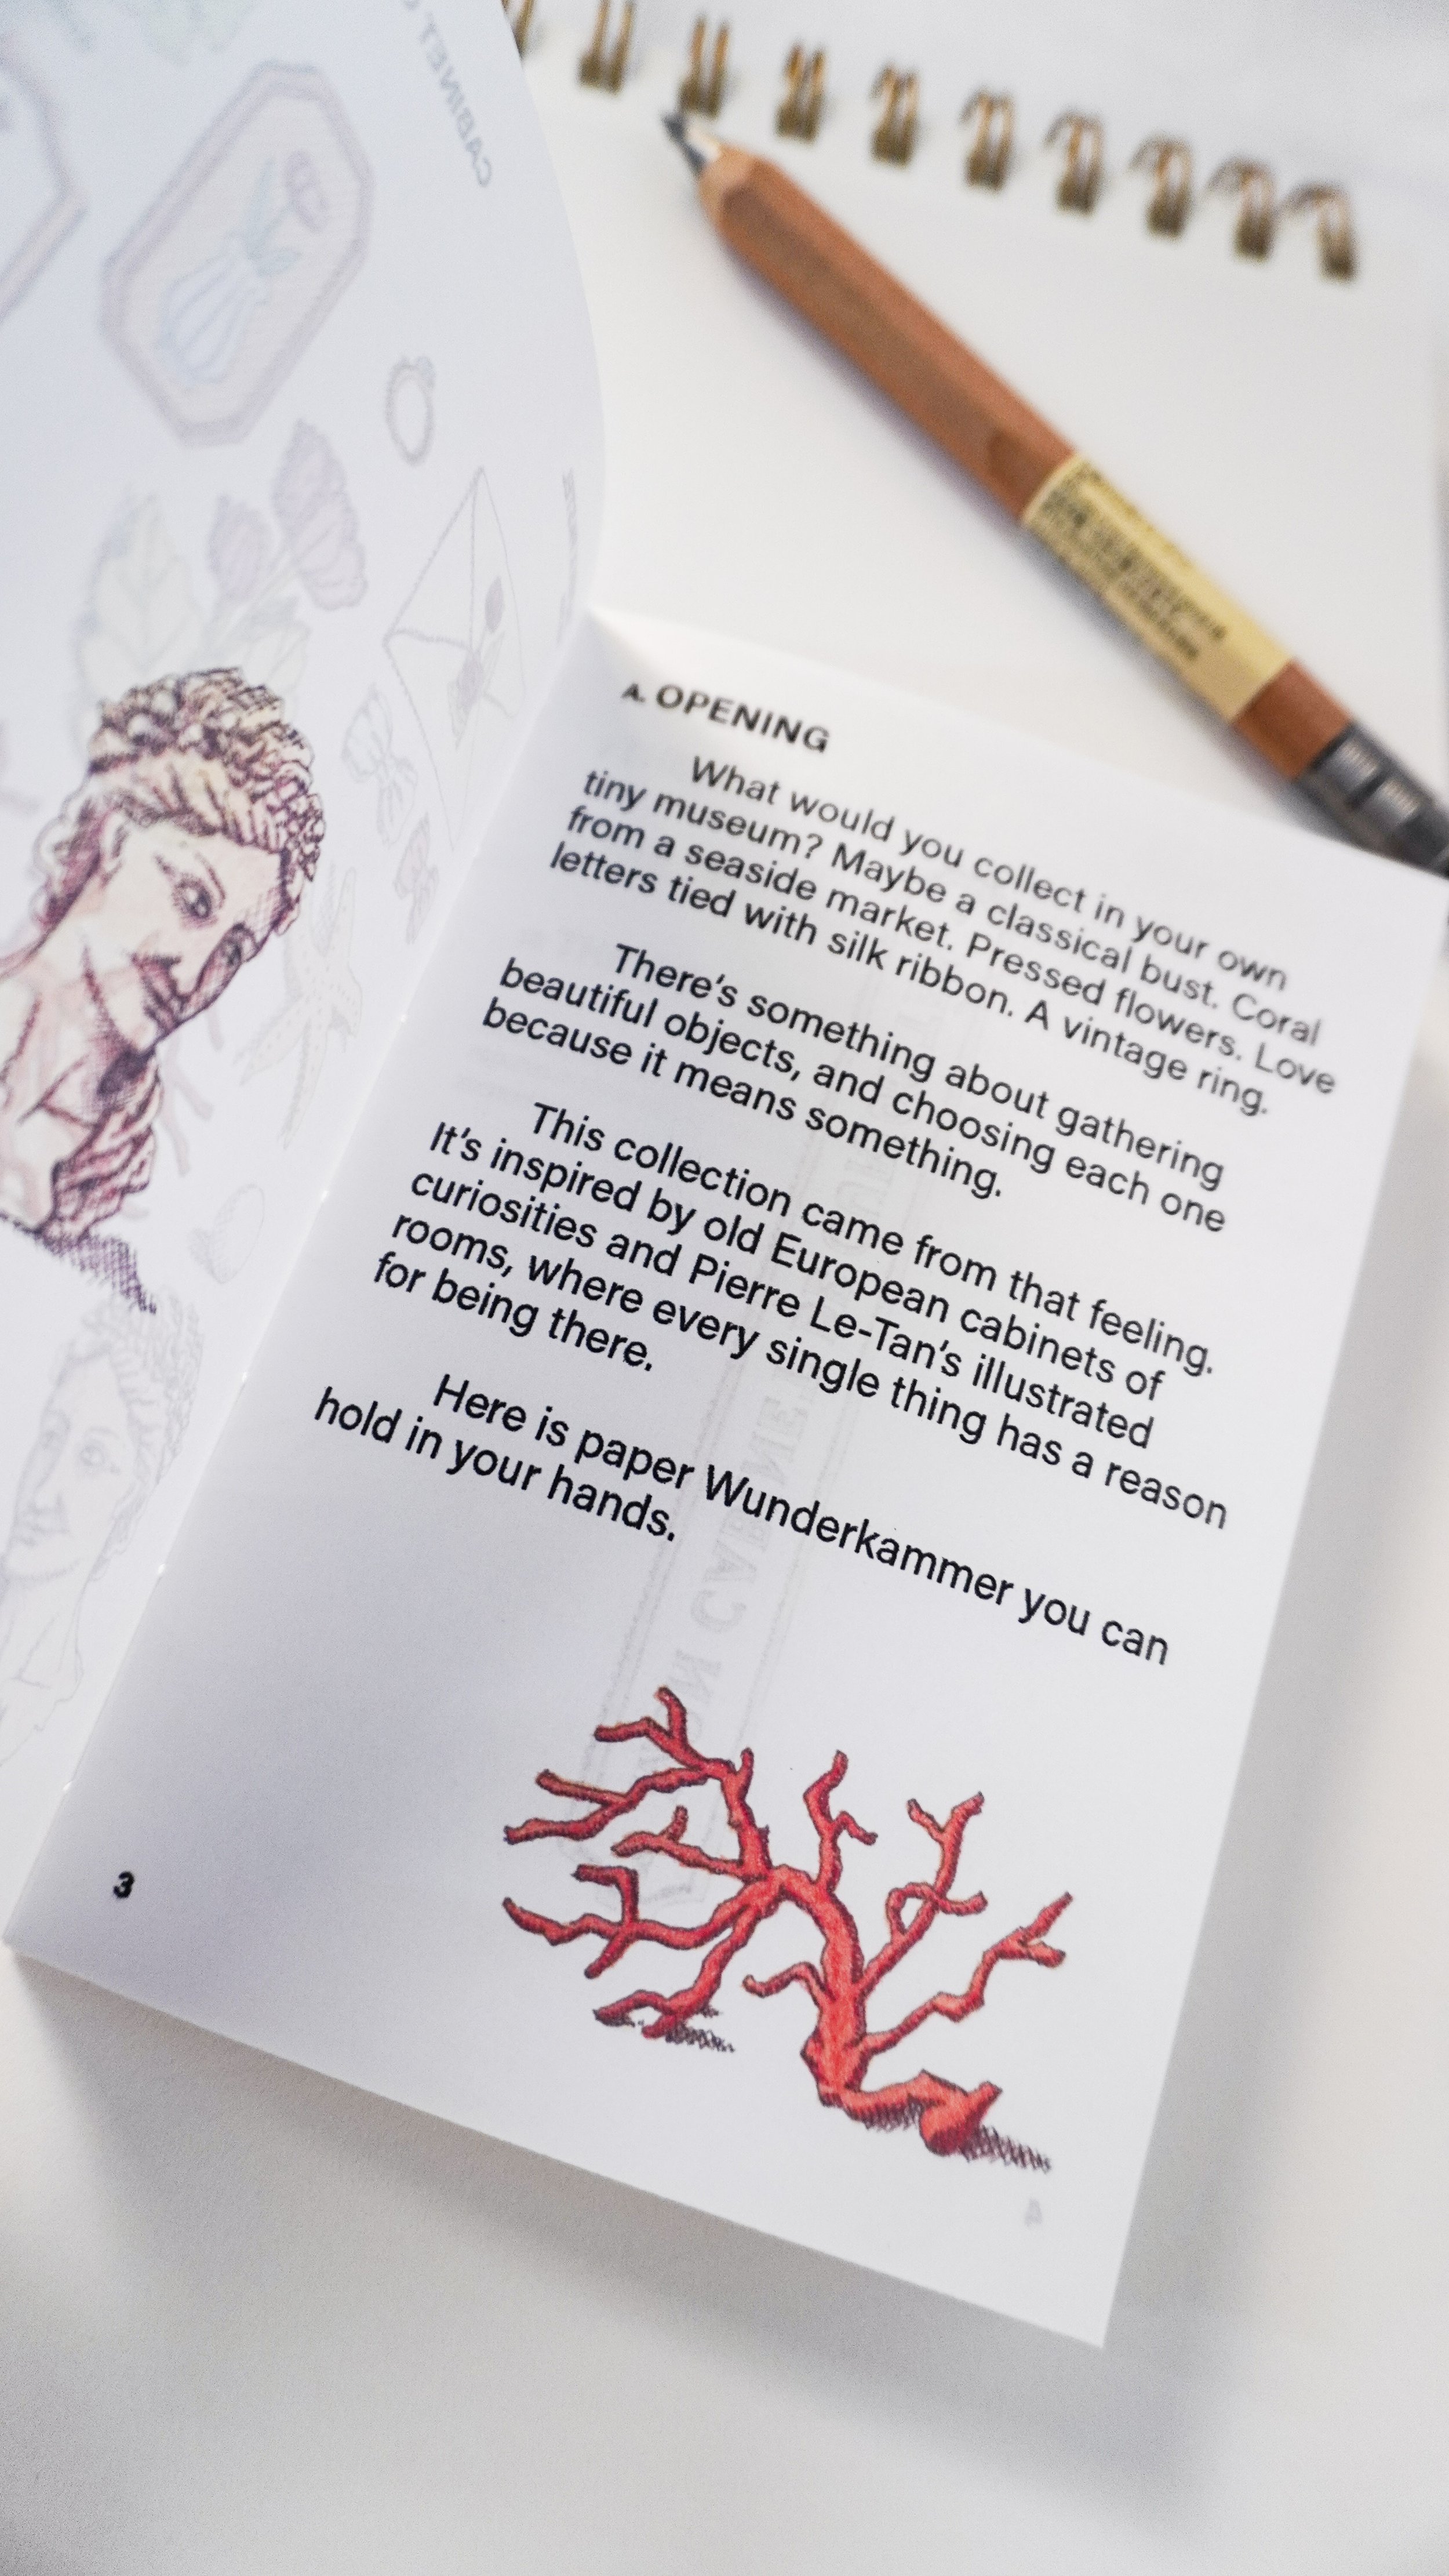 CABINET
A. OPENING
What would you collect in your own
tiny museum? Maybe a classical bust. Coral
from a seaside market. Pressed flowers. Love
letters tied with silk ribbon. A vintage ring.
There's something about gathering
beautiful objects, and choosing each one
because it means something.
This collection came from that feeling.
It's inspired by old European cabinets of
curiosities and Pierre Le-Tan's illustrated
rooms, where every single thing has a reason
for being there.
Here is paper Wunderkammer you can
hold in your hands.
3
4